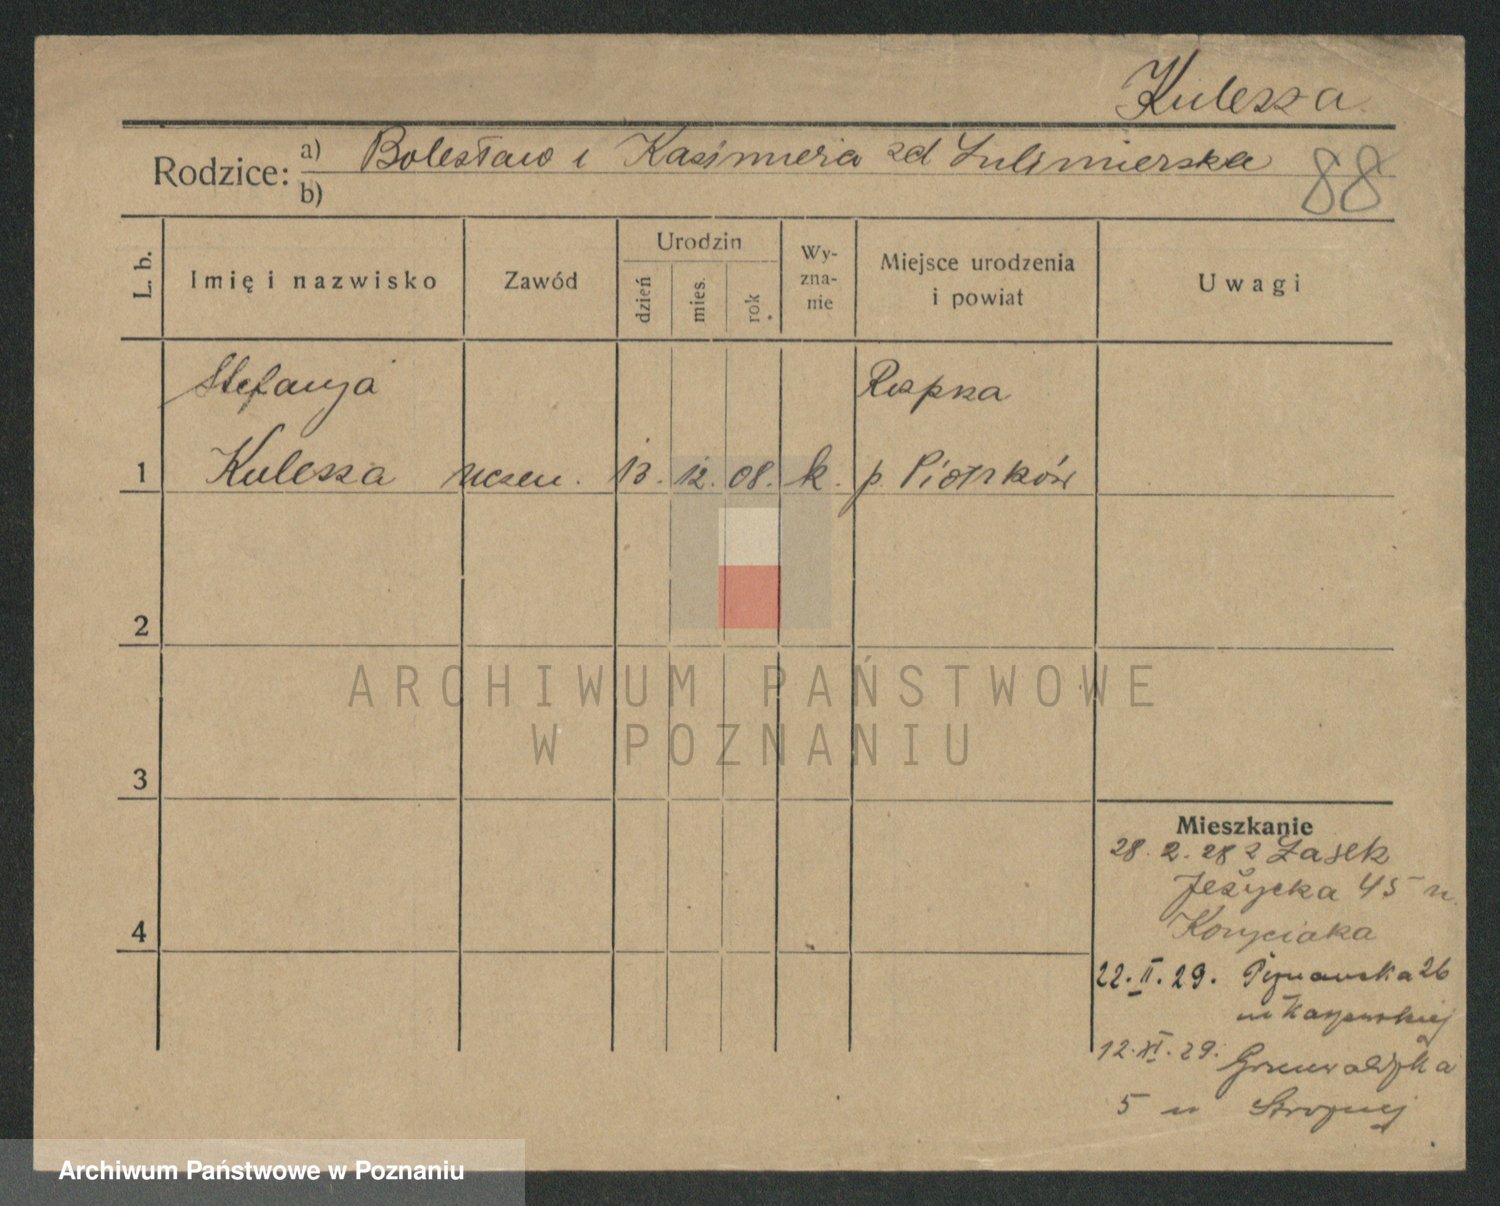 Kulesza
Rodzice: a) Bolesław i Kazimiera zd Sulimierska
b)
88
L. b.
Imię i nazwisko
Zawód
Urodzin
dzień
mies.
rok
Wy-
zna-
nie
Miejsce urodzenia
i powiat
Uwagi
Stefanja
Kulesza
1
uczen.
13. 12. 08.
k.
p. Piotrków
2
3
4
ARCHIWUM PAŃSTWOWE
W POZNANIU
Mieszkanie
28. 2. 28 z Łasek
Jeżycka 45 u
22. II. 29. 26
12. XI. 29. Grunwaldzka
5 u
Archiwum Państwowe w Poznaniu